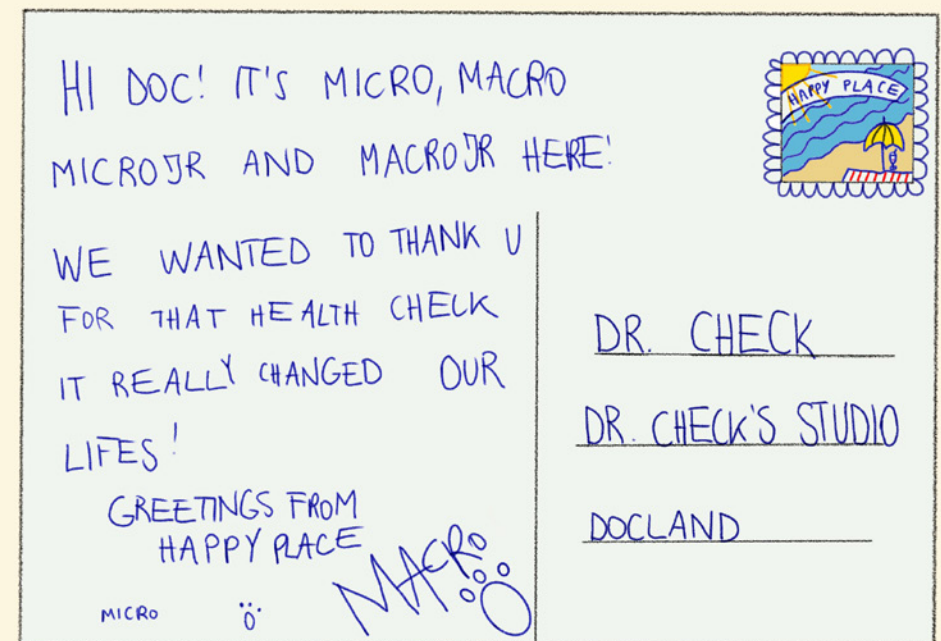 HI DOC! IT'S MICRO, MACRO
MICROJR AND MACROJR HERE!
HAPPY PLACE
WE WANTED TO THANK U
FOR THAT HEALTH CHECK
IT REALLY CHANGED OUR
LIFES!
GREETINGS FROM
HAPPY PLACE
MICRO
MACRO
DR. CHECK
DR. CHECK'S STUDIO
DOCLAND